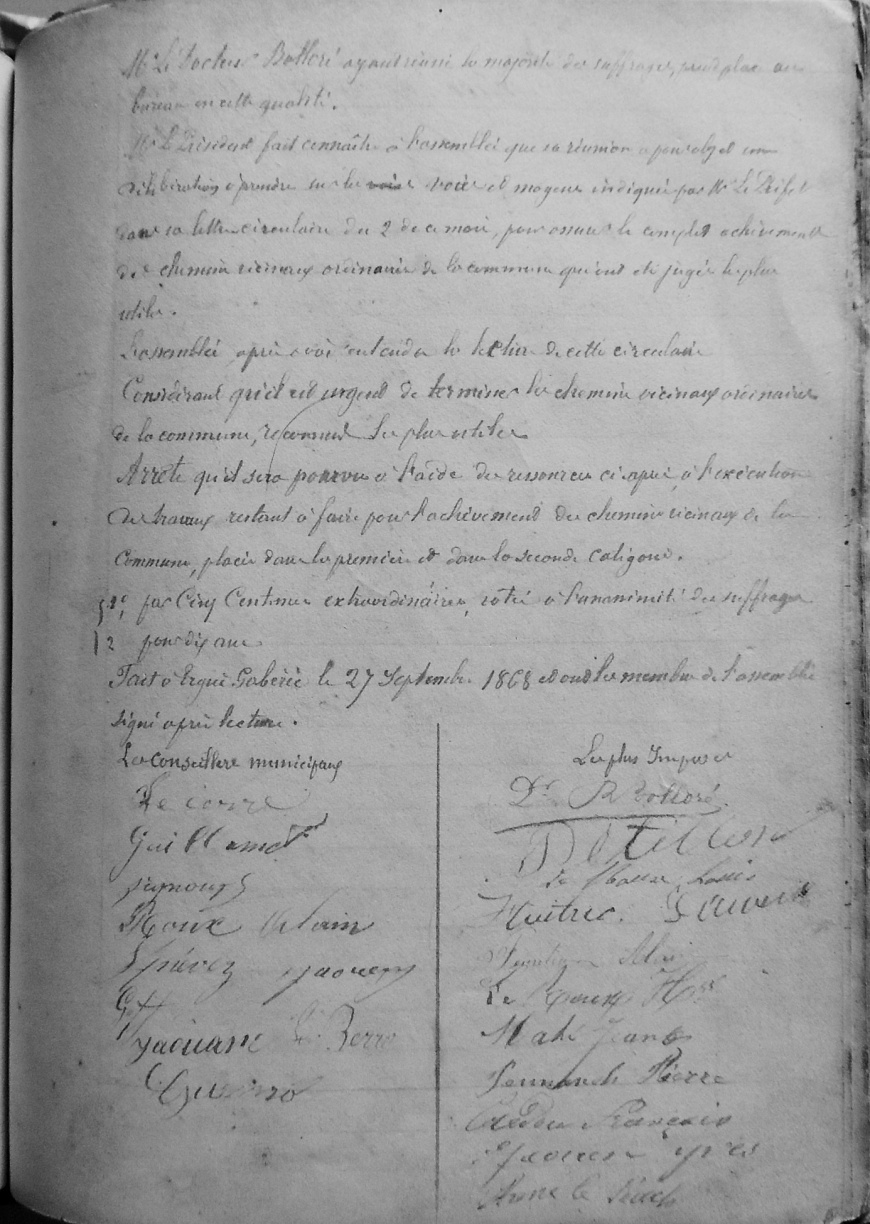 Mr Le Docteur Bolloré ayant réuni la majorité des suffrages, prend place au
bureau en cette qualité.
Mr Le Président fait connaître à l'assemblée que sa réunion a pour objet une
délibération à prendre sur les voies voies et moyens indiqués par Mr Le Préfet
dans sa lettre circulaire du 2 de ce mois, pour assurer le complet achèvement
des chemins vicinaux ordinaires de la commune qui ont été jugés les plus
utiles.
L'assemblée après avoir entendu la lecture de cette circulaire
Considérant qu'il est urgent de terminer les chemins vicinaux ordinaires
de la commune, reconnus les plus utiles
Arrête qu'il sera pourvu à l'aide des ressources ci-après, à l'exécution
des travaux restant à faire pour l'achèvement des chemins vicinaux de la
Commune, placés dans les premiere et dans la seconde catégorie.
1° par Cinq Centimes extraordinaires, votés à l'unanimité des suffrages
2 pour dix ans
Fait à Ergué Gabéric le 27 Septembre 1868 et ont les membres de l'assemblée
signé après lecture.
Les Conseillers municipaux
Les plus Imposés
Le corre
Dr R Bolloré
Guillamot
Roux Alain
Huitric Laurent
Spévez yaouen
Le Roux
Jaouanc Le Berre
Mahé Jean
Pierre
François
yaouen yves
René le